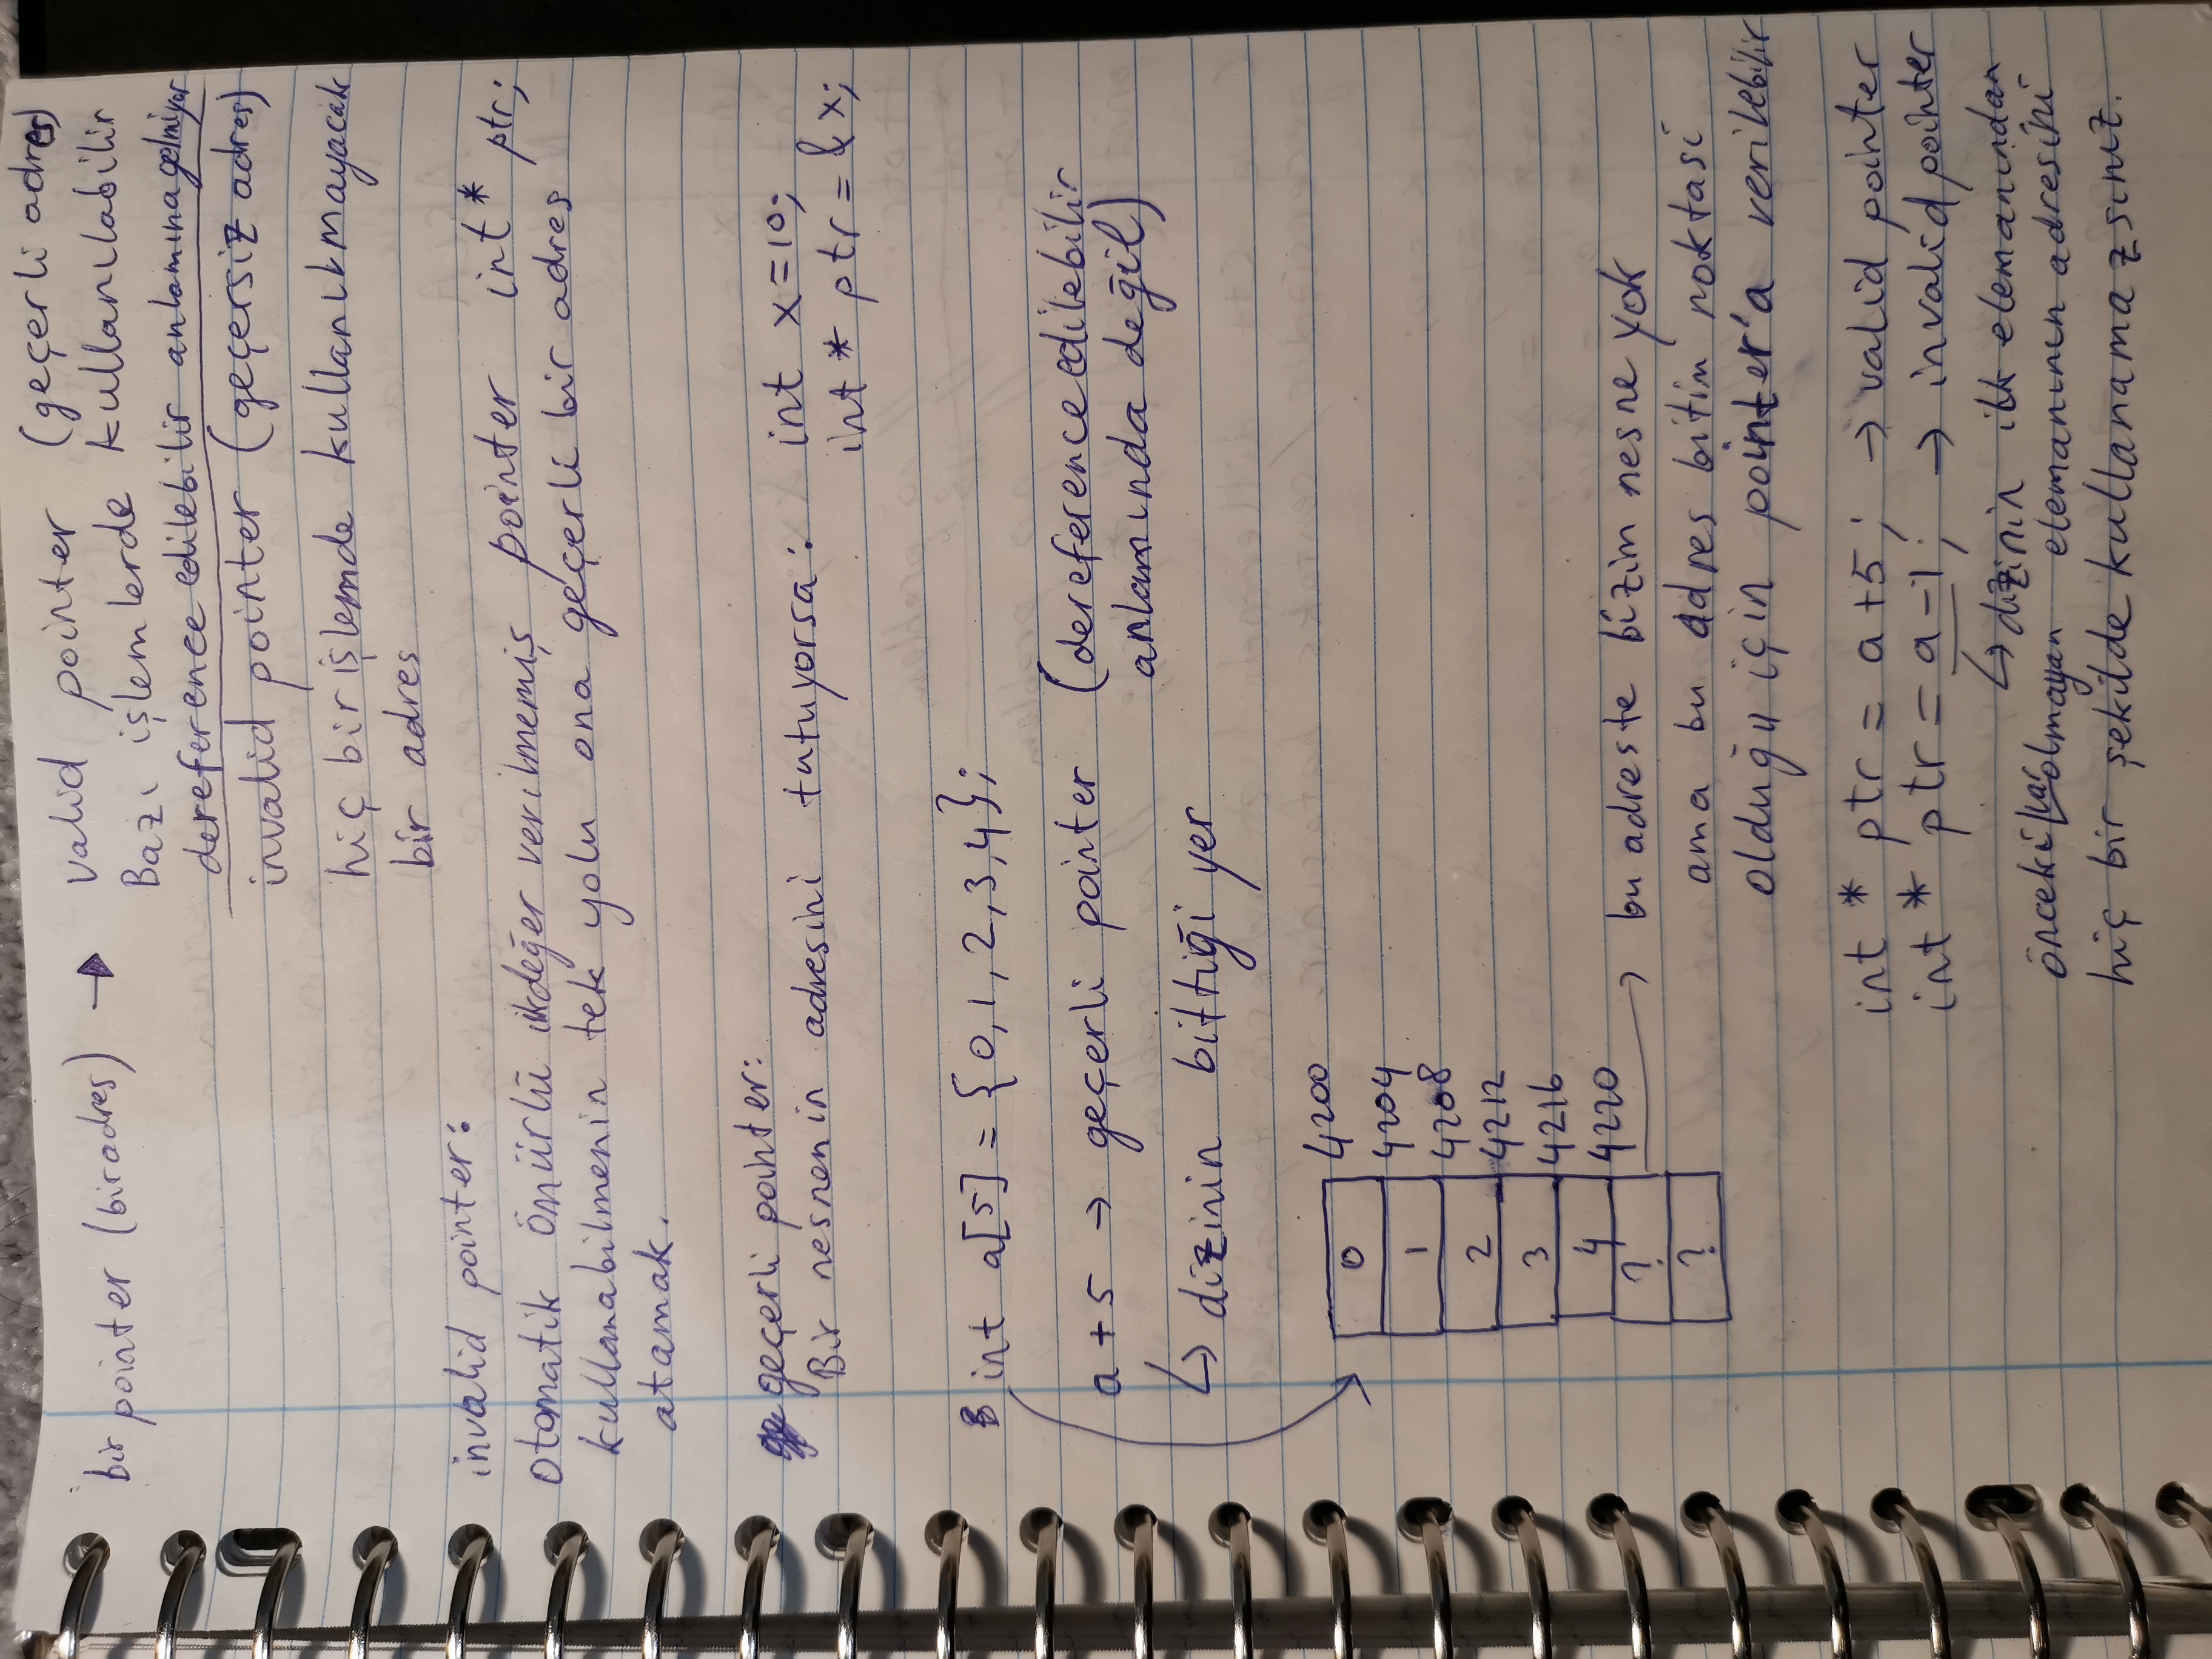 bir pointer (bir adres) → valid pointer (geçerli adres)
Bazı işlemlerde kullanılabilir
dereference edilebilir anlamına gelmiyor
invalid pointer (geçersiz adres)
hiç bir işlemde kullanılmayacak
bir adres
invalid pointer:
otomatik ömürlü ilkdeğer verilmemiş pointer int* ptr;
kullanabilmenin tek yolu ona geçerli bir adres
atamak.
geçerli pointer:
Bir nesnenin adresini tutuyorsa: int x=10;
int * ptr = &x;
int a[5] = {0,1,2,3,4};
a+5 → geçerli pointer (dereference edilebilir
anlamında değil)
↳ dizinin bittiği yer
4200
0
4204
1
4208
2
4212
3
4216
4
4220
? → bu adreste bizim nesne yok
?
ama bu adres bitim noktasi
olduğu için pointer'a verilebilir
int * ptr = a+5; → valid pointer
int * ptr = a-1; → invalid pointer
↳ dizinin ilk elemanından
önceki var olmayan elemanının adresini
hiç bir şekilde kullanamazsınız.